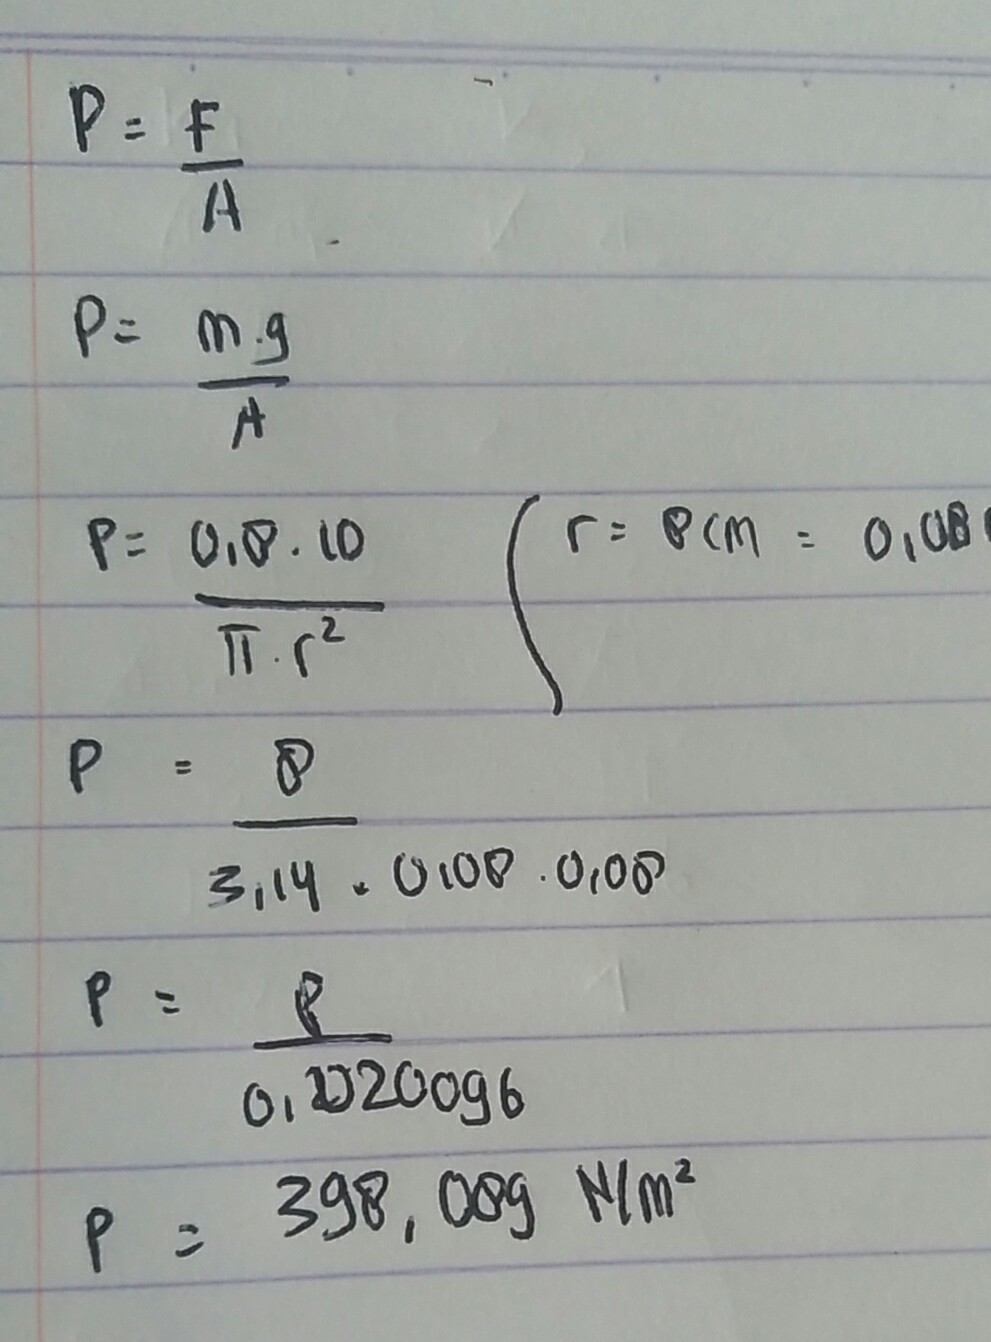 P = F/A
P = m.g/A
P = 0,8 . 10/π . r² ( r = 8 cm = 0,08
P = 8/3,14 . 0,08 . 0,08
P = 8/0,020096
P = 398,089 N/m²